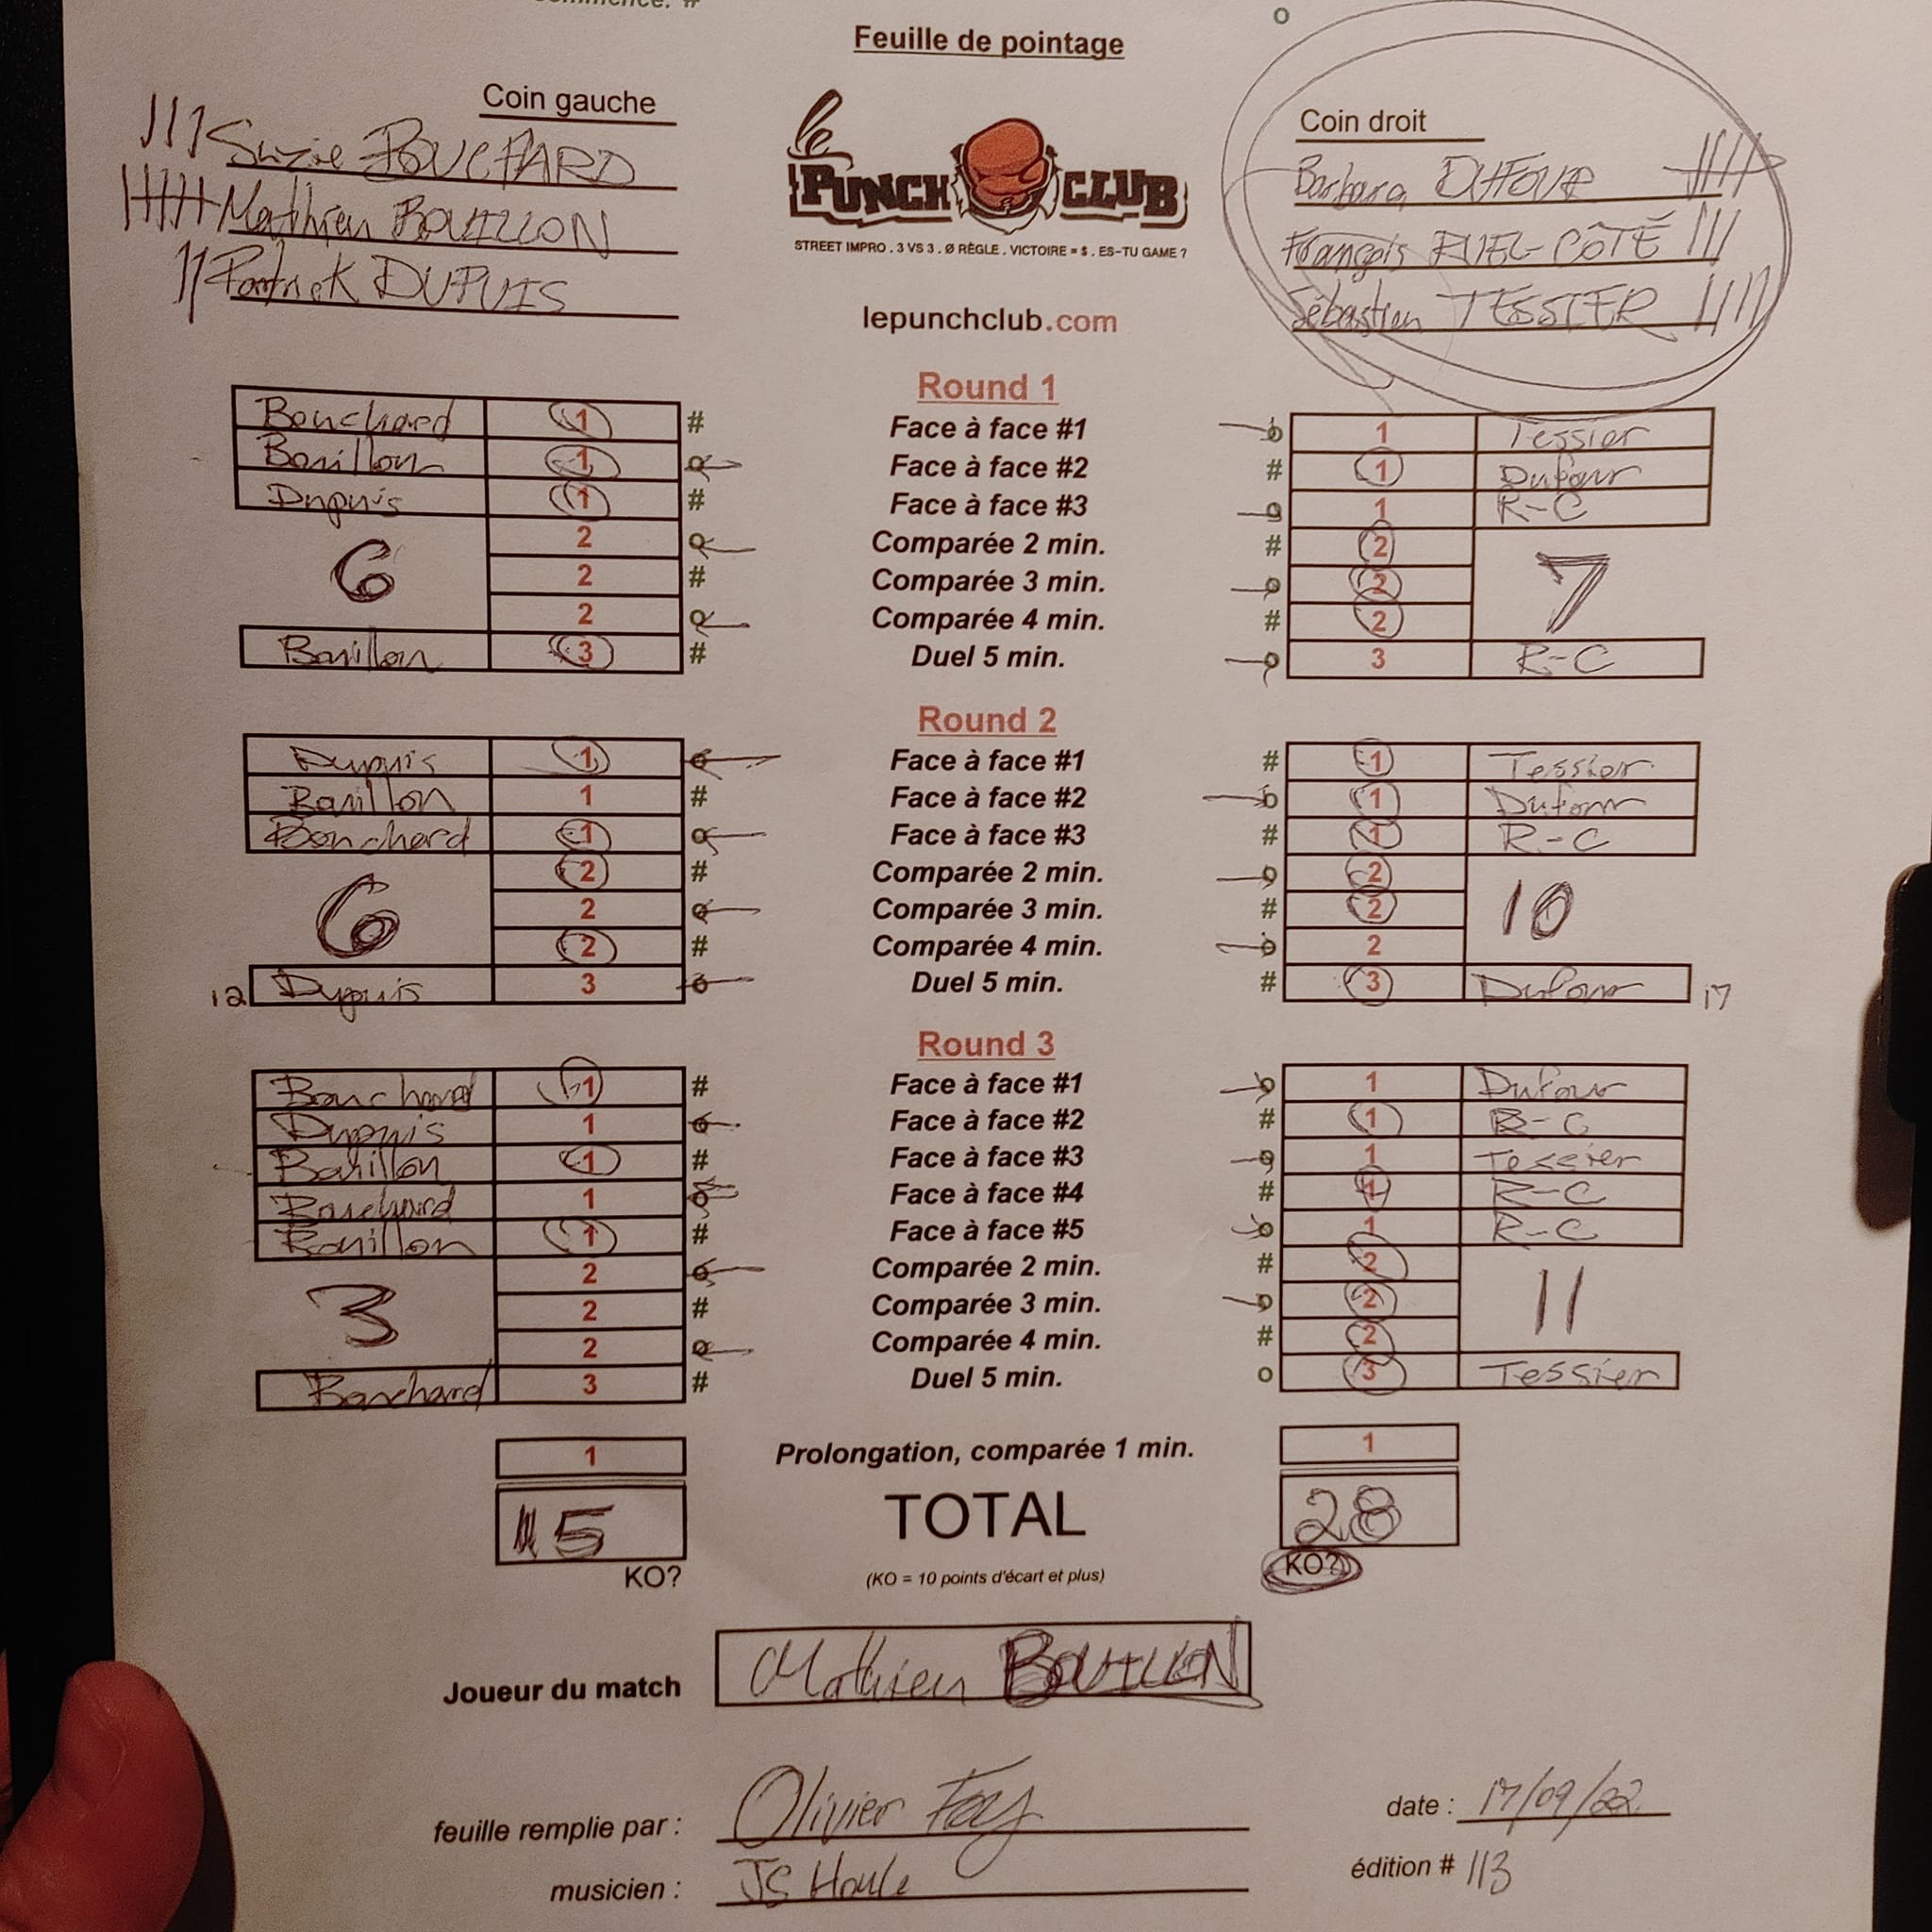 Feuille de pointage
Coin gauche
Suzie BOUCHARD
Mathieu BOUILLON
Patrick DUPUIS
le PUNCH CLUB
STREET IMPRO . 3 VS 3 . Ø RÈGLE . VICTOIRE = $ . ES-TU GAME ?
lepunchclub.com
o
Coin droit
Barbara DUFOUR
François RUEL-CÔTÉ
Sébastien TESSIER
Round 1
Bouchard 1 # Face à face #1 o 1 Tessier
Bouillon 1 o Face à face #2 # 1 Dufour
Dupuis 1 # Face à face #3 o 1 R-C
2 o Comparée 2 min. # 2
6 2 # Comparée 3 min. o 2 7
2 o Comparée 4 min. # 2
Bouillon 3 # Duel 5 min. o 3 R-C
Round 2
Dupuis 1 o Face à face #1 # 1 Tessier
Bouillon 1 # Face à face #2 o 1 Dufour
Bouchard 1 o Face à face #3 # 1 R-C
2 # Comparée 2 min. o 2
6 2 o Comparée 3 min. # 2 10
2 # Comparée 4 min. o 2
12 Dupuis 3 o Duel 5 min. # 3 Dufour 17
Round 3
Bouchard 1 # Face à face #1 o 1 Dufour
Dupuis 1 o Face à face #2 # 1 R-C
Bouillon 1 # Face à face #3 o 1 Tessier
Bouchard 1 o Face à face #4 # 1 R-C
Bouillon 1 # Face à face #5 o 1 R-C
2 o Comparée 2 min. # 2
3 2 # Comparée 3 min. o 2 11
2 o Comparée 4 min. # 2
Bouchard 3 # Duel 5 min. o 3 Tessier
1 Prolongation, comparée 1 min. 1
15 TOTAL 28
KO? (KO = 10 points d'écart et plus) KO?
Joueur du match Mathieu BOUILLON
feuille remplie par : Olivier Foy date : 17/09/22
musicien : JS Houle édition # 113